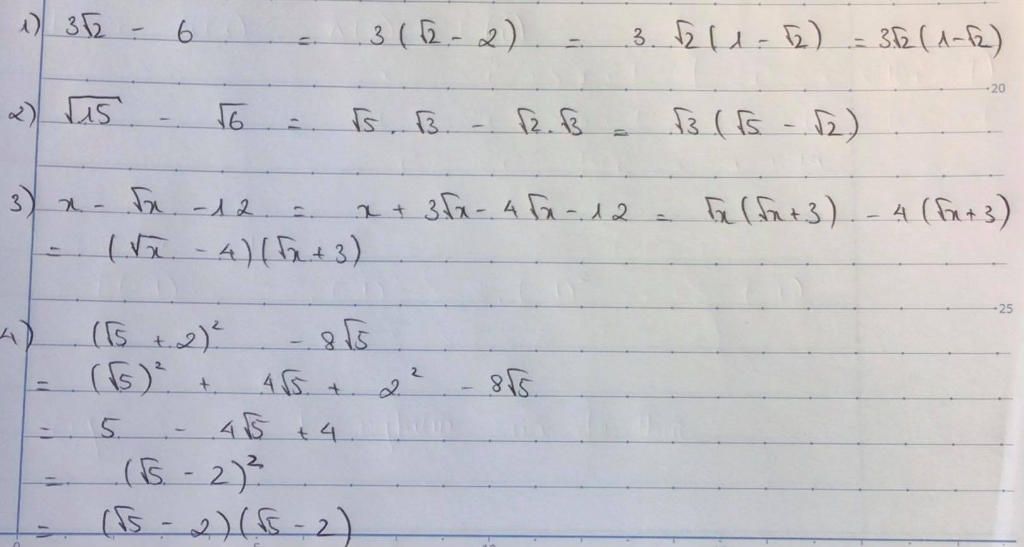 1) 3√2 - 6 = 3(√2 - 2) = 3. √2(1 - √2) = 3√2(1-√2)
20
2) √15 - √6 = √5.√3 - √2.√3 = √3(√5 - √2)
3) x - √x - 12 = x + 3√x - 4√x - 12 = √x(√x+3) - 4(√x+3)
= (√x - 4)(√x+3)
25
4) (√5 + 2)² - 8√5
= (√5)² + 4√5 + 2² - 8√5
= 5 - 4√5 + 4
= (√5 - 2)²
= (√5 - 2)(√5 - 2)